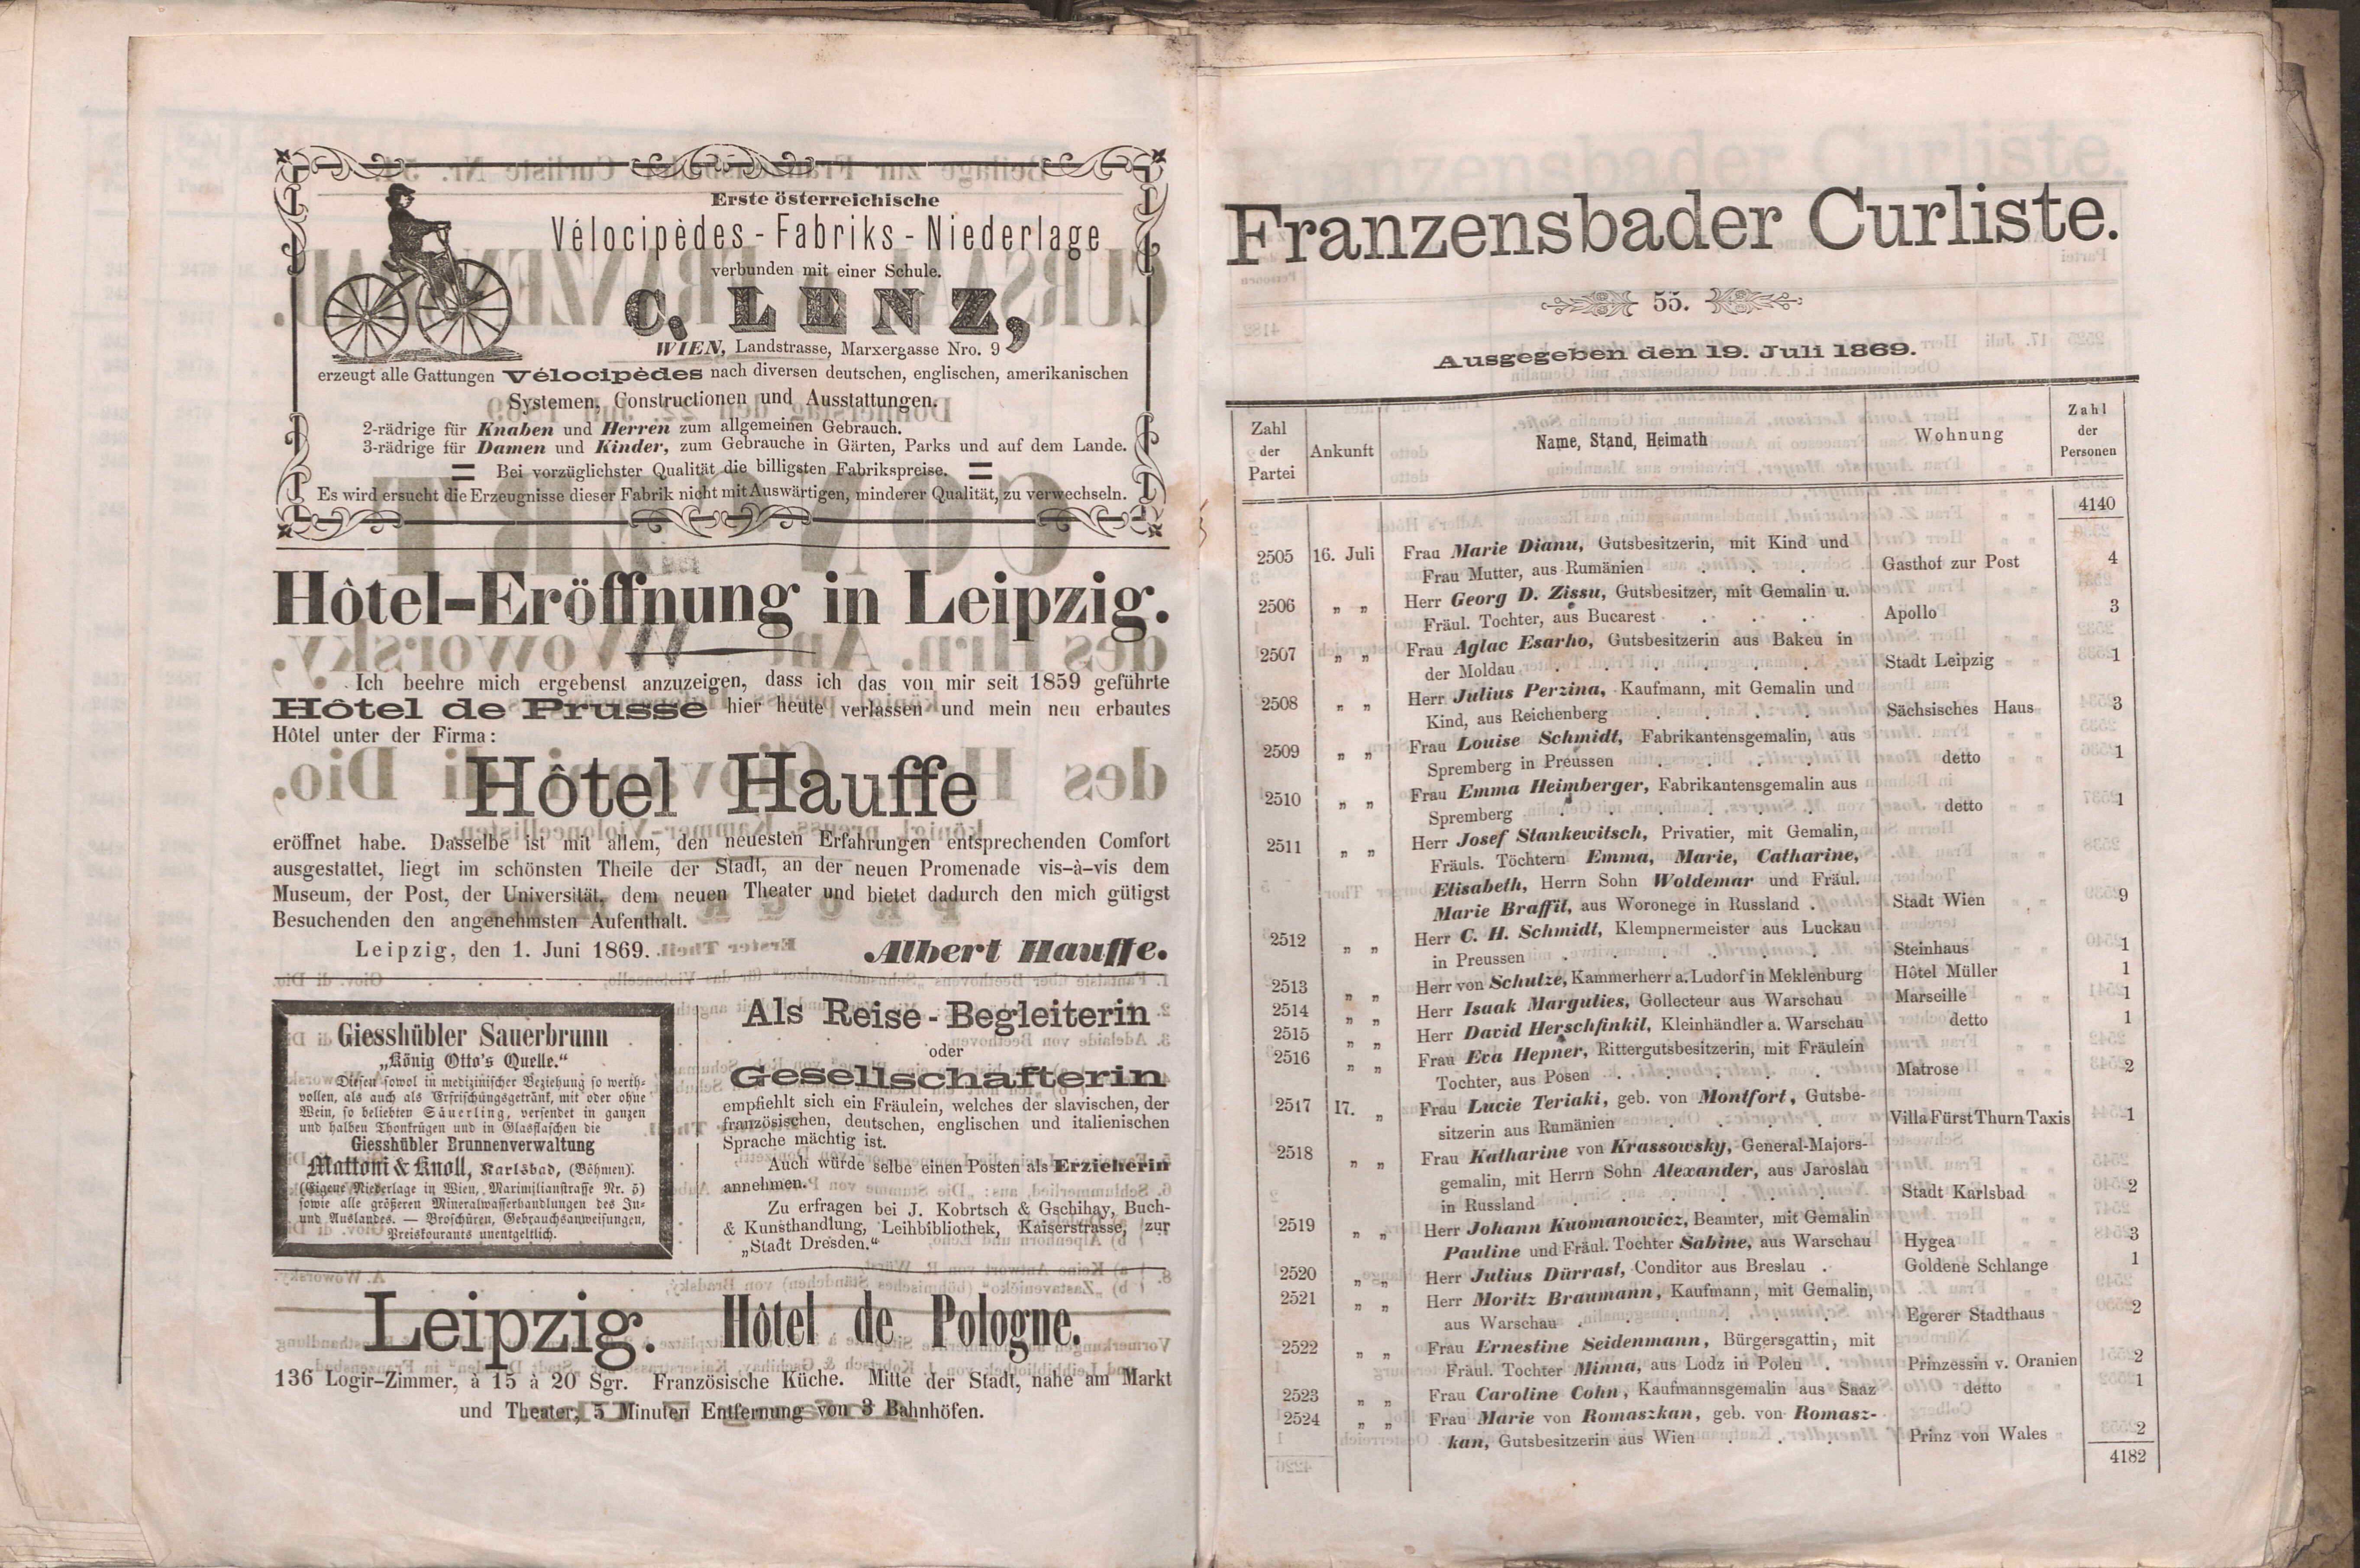 Erste österreichische
Vélocipèdes - Fabriks - Niederlage
verbunden mit einer Schule.
C. LENZ,
WIEN, Landstrasse, Marxergasse Nro. 9
erzeugt alle Gattungen Vélocipèdes nach diversen deutschen, englischen, amerikanischen
Systemen, Constructionen und Ausstattungen.
2-rädrige für Knaben und Herren zum allgemeinen Gebrauch.
3-rädrige für Damen und Kinder, zum Gebrauche in Gärten, Parks und auf dem Lande.
Bei vorzüglichster Qualität die billigsten Fabrikspreise.
Es wird ersucht die Erzeugnisse dieser Fabrik nicht mit Auswärtigen, minderer Qualität, zu verwechseln.
Hôtel-Eröffnung in Leipzig.
Ich beehre mich ergebenst anzuzeigen, dass ich das von mir seit 1859 geführte
Hôtel de Prusse hier heute verlassen und mein neu erbautes
Hôtel unter der Firma:
Hôtel Hauffe
eröffnet habe. Dasselbe ist mit allem, den neuesten Erfahrungen entsprechenden Comfort
ausgestattet, liegt im schönsten Theile der Stadt, an der neuen Promenade vis-à-vis dem
Museum, der Post, der Universität, dem neuen Theater und bietet dadurch den mich gütigst
Besuchenden den angenehmsten Aufenthalt.
Leipzig, den 1. Juni 1869. Albert Hauffe.
Giesshübler Sauerbrunn
„König Otto's Quelle.“
Diesen sowol in medizinischer Beziehung so werth-
vollen, als auch als Erfrischungsgetränk, mit oder ohne
Wein, so beliebten Säuerling, versendet in ganzen
und halben Thonkrügen und in Glasflaschen die
Giesshübler Brunnenverwaltung
Mattoni & Knoll, Karlsbad, (Böhmen).
(Eigene Niederlage in Wien, Maximilianstrasse Nr. 5)
sowie alle größeren Mineralwasserhandlungen des In-
und Auslandes. — Broschüren, Gebrauchsanweisungen,
Preiskourants unentgeltlich.
Als Reise-Begleiterin
oder
Gesellschafterin
empfiehlt sich ein Fräulein, welches der slavischen, der
französischen, deutschen, englischen und italienischen
Sprache mächtig ist.
Auch würde selbe einen Posten als Erzieherin
annehmen.
Zu erfragen bei J. Kobrtsch & Gschihay, Buch-
& Kunsthandlung, Leihbibliothek, Kaiserstrasse, zur
„Stadt Dresden.“
Leipzig. Hôtel de Pologne.
136 Logir-Zimmer, à 15 à 20 Sgr. Französische Küche. Mitte der Stadt, nahe am Markt
und Theater, 5 Minuten Entfernung von 3 Bahnhöfen.
Franzensbader Curliste.
55.
Ausgegeben den 19. Juli 1869.
Zahl der Partei | Ankunft | Name, Stand, Heimath | Wohnung | Zahl der Personen
4140
2505 16. Juli Frau Marie Dianu, Gutsbesitzerin, mit Kind und
Frau Mutter, aus Rumänien . . . Gasthof zur Post 4
2506 „ „ Herr Georg D. Zissu, Gutsbesitzer, mit Gemalin u.
Fräul. Tochter, aus Bucarest . . . . Apollo 3
2507 „ „ Frau Aglac Esarho, Gutsbesitzerin aus Bakeu in
der Moldau . . . . . . Stadt Leipzig 1
2508 „ „ Herr Julius Perzina, Kaufmann, mit Gemalin und
Kind, aus Reichenberg . . . . Sächsisches Haus 3
2509 „ „ Frau Louise Schmidt, Fabrikantensgemalin, aus
Spremberg in Preussen . . . . detto 1
2510 „ „ Frau Emma Heimberger, Fabrikantensgemalin aus
Spremberg . . . . . . detto 1
2511 „ „ Herr Josef Stankewitsch, Privatier, mit Gemalin,
Fräuls. Töchtern Emma, Marie, Catharine,
Elisabeth, Herrn Sohn Woldemar und Fräul.
Marie Braffil, aus Woronege in Russland . Stadt Wien 9
2512 „ „ Herr C. H. Schmidt, Klempnermeister aus Luckau
in Preussen . . . . . . Steinhaus 1
2513 „ „ Herr von Schulze, Kammerherr a. Ludorf in Meklenburg Hôtel Müller 1
2514 „ „ Herr Isaak Margulies, Gollecteur aus Warschau Marseille 1
2515 „ „ Herr David Herschfinkil, Kleinhändler a. Warschau detto 1
2516 „ „ Frau Eva Hepner, Rittergutsbesitzerin, mit Fräulein
Tochter, aus Posen . . . . . Matrose 2
2517 17. „ Frau Lucie Teriaki, geb. von Montfort, Gutsbe-
sitzerin aus Rumänien . . . . Villa Fürst Thurn Taxis 1
2518 „ „ Frau Katharine von Krassowsky, General-Majors-
gemalin, mit Herrn Sohn Alexander, aus Jaroslau
in Russland . . . . . . Stadt Karlsbad 2
2519 „ „ Herr Johann Kuomanowicz, Beamter, mit Gemalin
Pauline und Fräul. Tochter Sabine, aus Warschau Hygea 3
2520 „ „ Herr Julius Dürrast, Conditor aus Breslau . Goldene Schlange 1
2521 „ „ Herr Moritz Braumann, Kaufmann, mit Gemalin,
aus Warschau . . . . . . Egerer Stadthaus 2
2522 „ „ Frau Ernestine Seidenmann, Bürgersgattin, mit
Fräul. Tochter Minna, aus Lodz in Polen . Prinzessin v. Oranien 2
2523 „ „ Frau Caroline Cohn, Kaufmannsgemalin aus Saaz detto 1
2524 „ „ Frau Marie von Romaszkan, geb. von Romasz-
kan, Gutsbesitzerin aus Wien . . . Prinz von Wales 2
4182